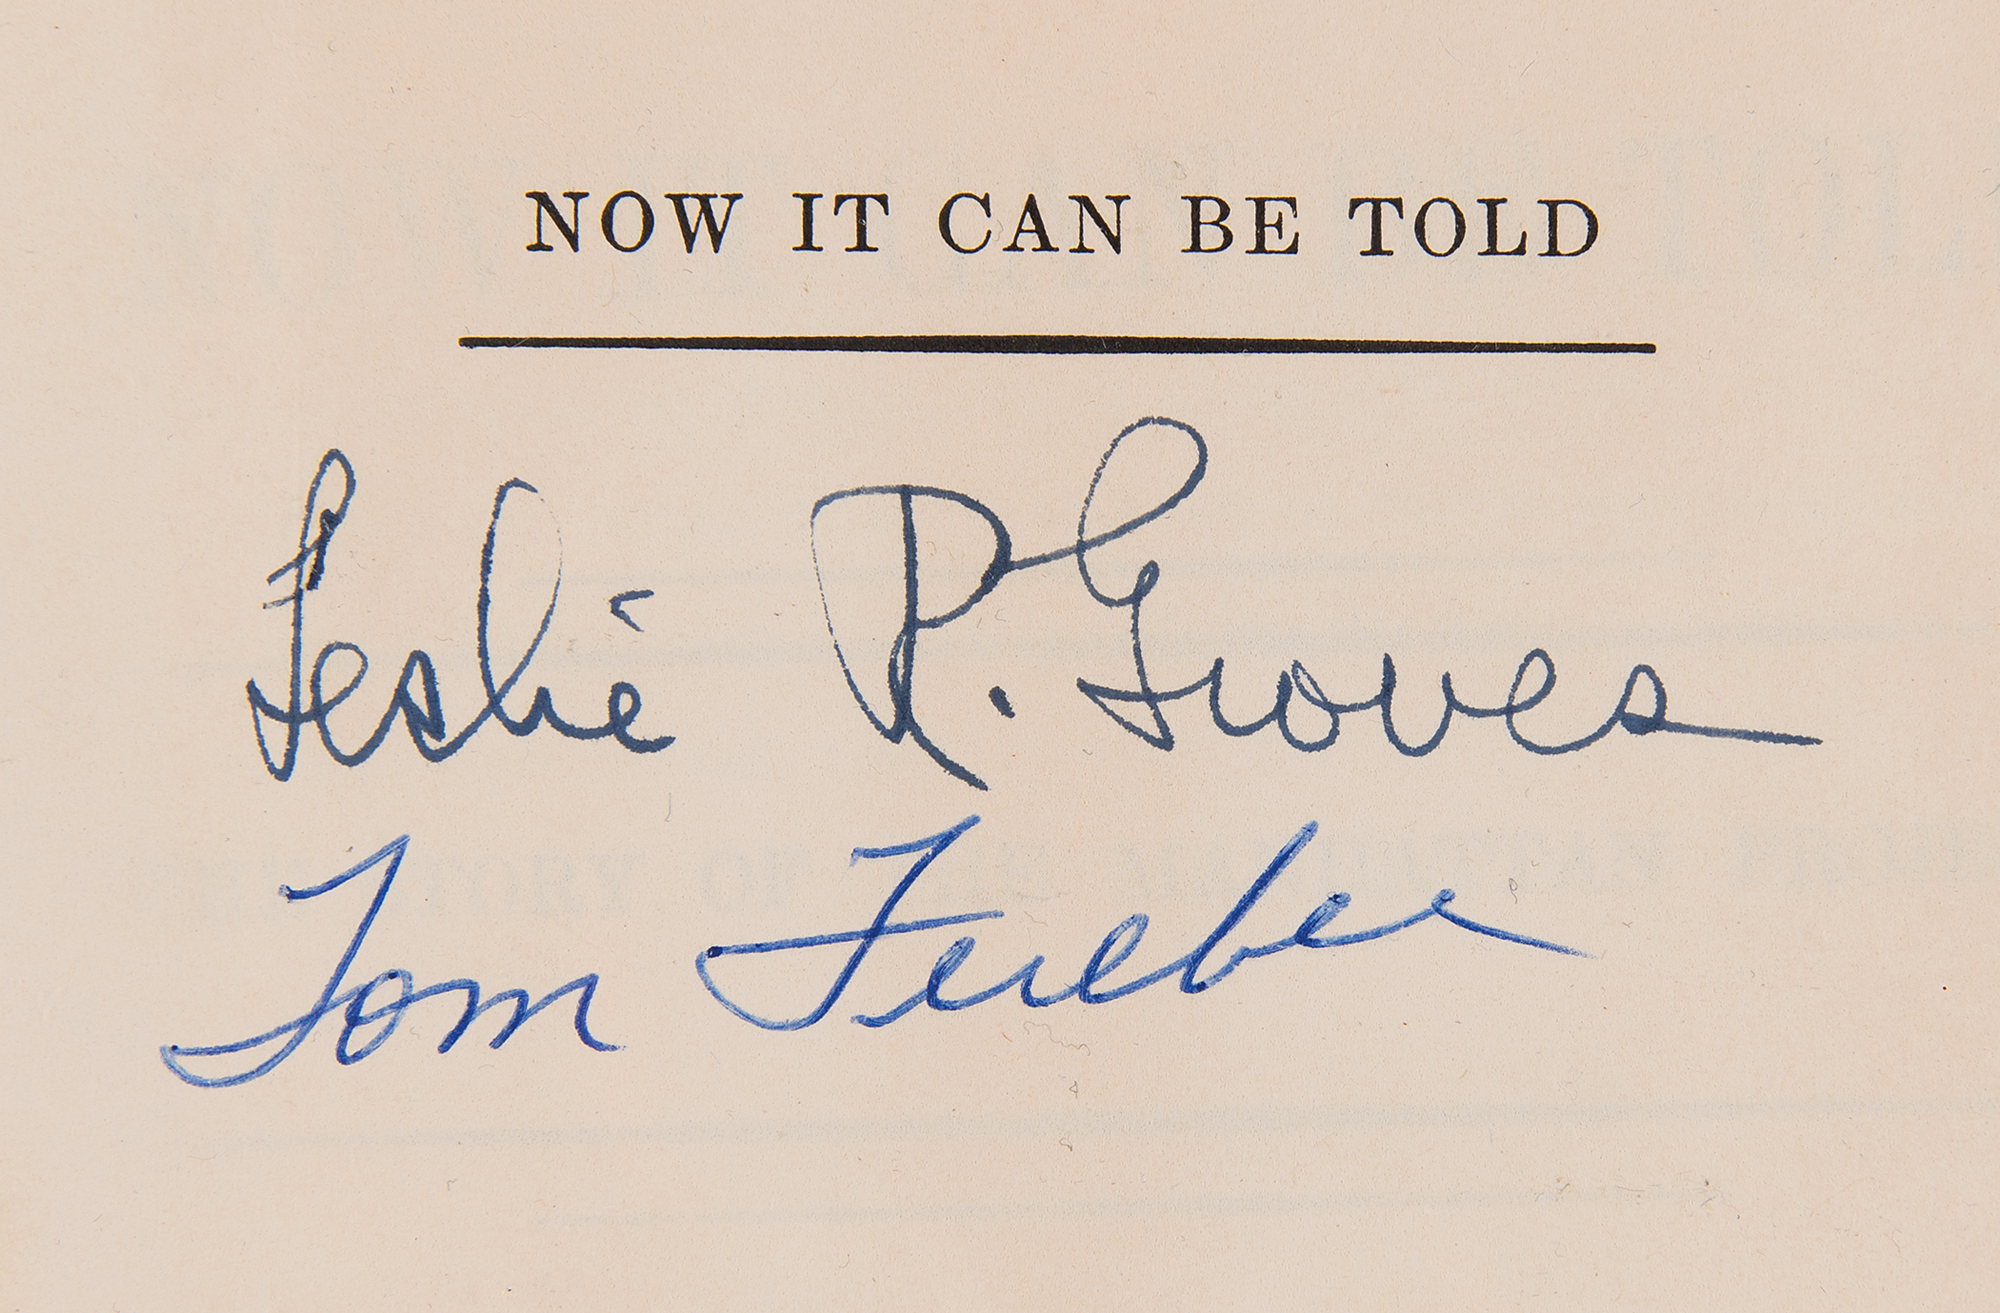 NOW IT CAN BE TOLD
Leslie R. Groves
Tom Ferebee